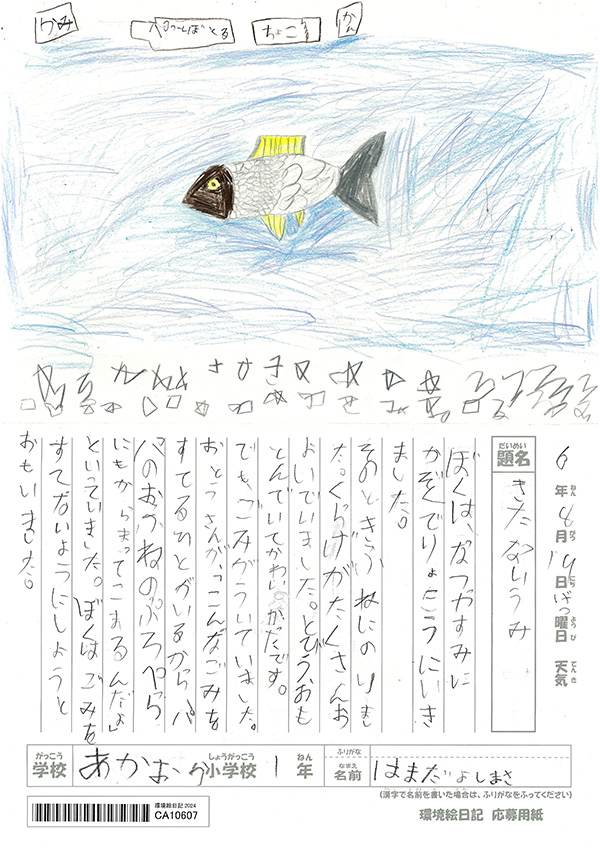 かみ
ぺっとぼとる
ちょこ
かん
6年8月19日げつ曜日 天気
ねん
がつ
にち
ようび
てんき
だいめい
題名
きたないうみ
ぼくは、なつやすみに
かぞくでりょこうにいき
ました。
そのときふねにのりまし
た。くらげがたくさんお
よいでいました。とびうおも
とんでいてかわいかったです。
でも、ごみがういていました。
おとうさんが、「こんなごみを
すてるひとがいるから、パ
パのおふねのぷろぺら
にもからまってこまるんだよ」
といっていました。ぼくはごみを
すてないようにしようと
おもいました。
がっこう
学校
あかおか
しょうがっこう
小学校
1
ねん
年
ふりがな
なまえ
名前
はまだよしまさ
(漢字で名前を書いた場合は、ふりがなをふってください)
環境絵日記 2024
CA10607
環境絵日記 応募用紙